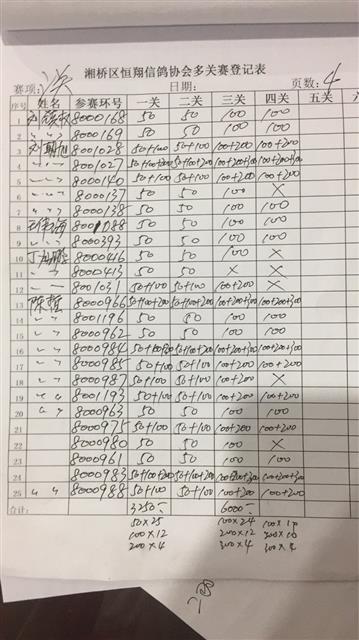 湘桥区恒翔信鸽协会多关赛登记表
赛项: 日期: 页数: 4
序号 姓名 参赛环号 一关 二关 三关 四关 五关 六
1 8000168 50 50 100 100
2 〃 〃 8000169 50 50 100 100
3 8001028 50+100 50+100 100+200 100+200
4 〃 〃 8001027 50+100+200 50+100+200 100+200+300 100+200+300
5 〃 〃 8000140 50+100 50+100 100+200 100+200
6 〃 〃 8000137 50 50 100 ×
7 〃 〃 8000138 50 50 100 100
8 8001088 50 50 100 100
9 〃 〃 8000393 50 50 100 100
10 8000416 50 50 100 ×
11 〃 〃 8000413 50 50 × ×
12 8001031 50+100 50+100 100+200 ×
13 陈哲 8000966 50+100+200 50+100+200 100+200+300 100+200+300
14 〃 〃 8001196 50 50 100 100
15 〃 〃 8000962 50 50 100 100
16 〃 〃 8000984 50+100+200 50+100+200 100+200+300 100+200+300
17 〃 〃 8000985 50+100 50+100 100+200 100+200
18 〃 〃 8000987 50+100 50+100 100+200 ×
19 〃 〃 8001193 50+100 50+100 100+200 100+200
20 〃 〃 8000963 50 50 100 100
21 8000975 50+100 50+100 100+200 100+200
22 8000980 50 50 100 ×
23 8000961 50 50 100 100
24 8000983 50+100+200 50+100+200 100+200+300 100+200+300
25 〃 〃 8000988 50+100 50+100 100+200 100+200
合计: 3250 6000
50×25 100×24
100×12 200×12
200×4 300×4